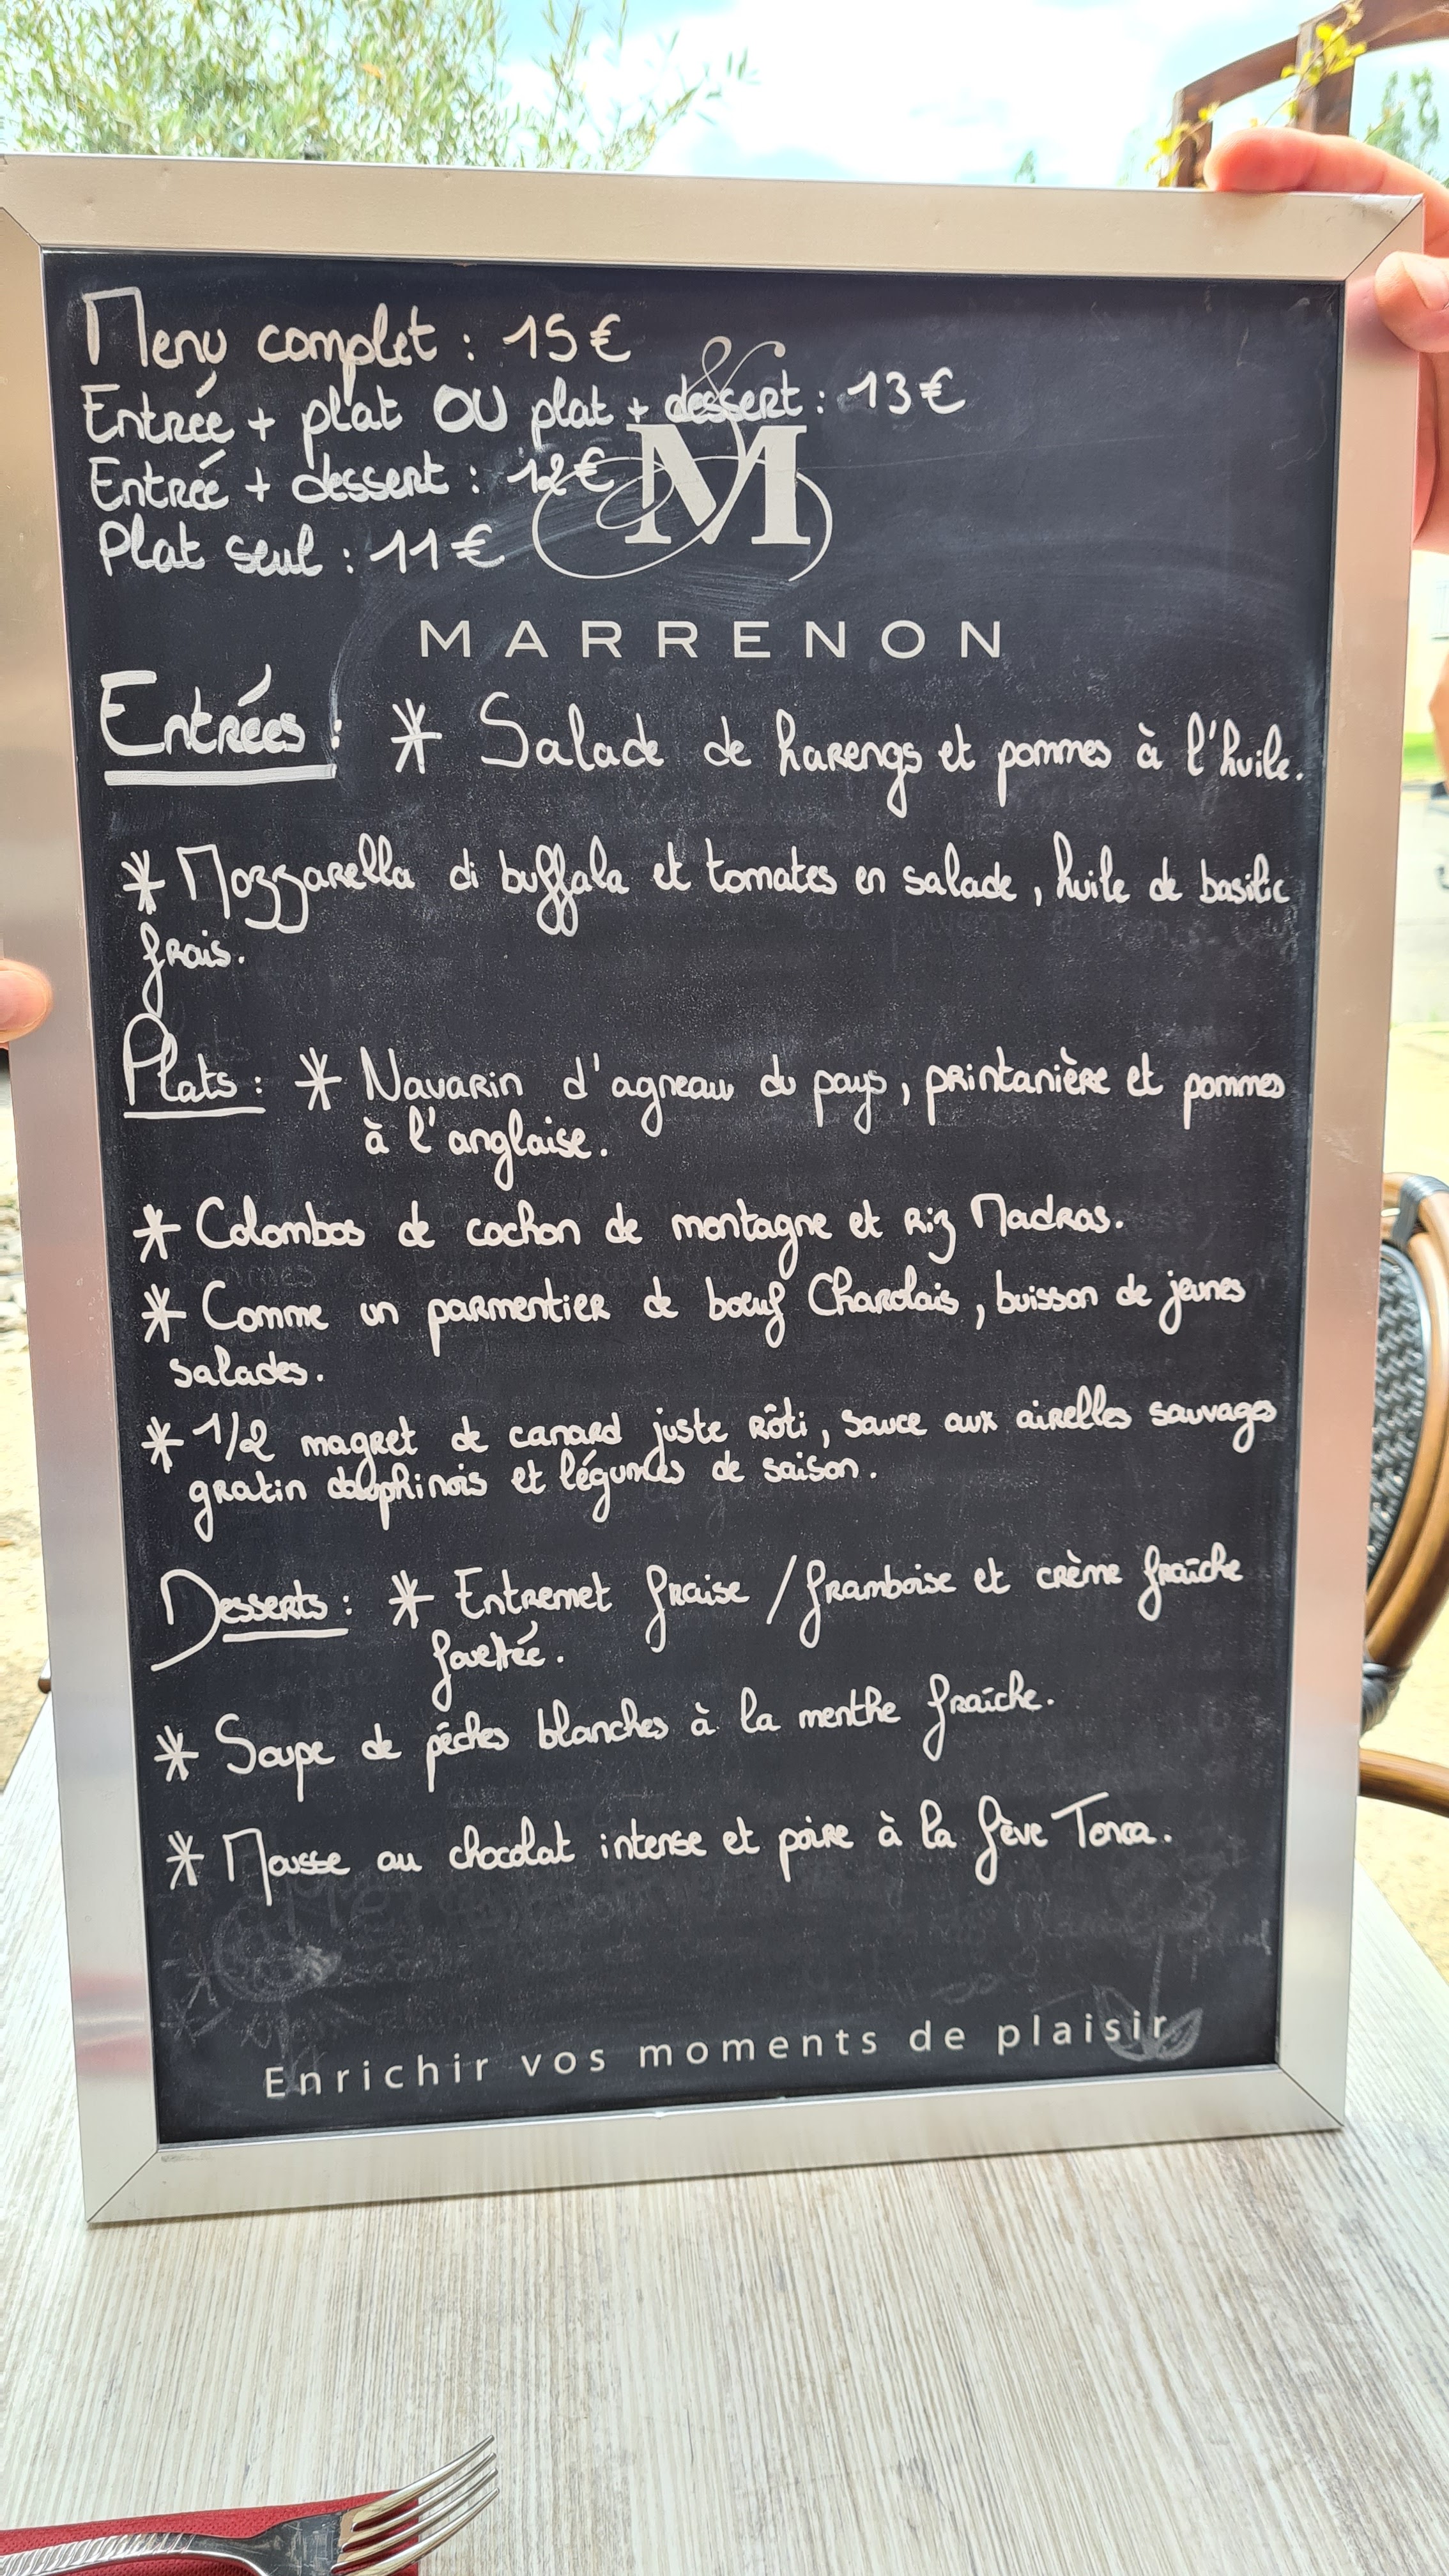 Menu complet : 15€
Entrée + plat OU plat + dessert : 13€
Entrée + dessert : 12€
Plat seul : 11€
&
M
MARRENON
Entrées : * Salade de harengs et pommes à l'huile.
* Mozzarella di buffala et tomates en salade, huile de basilic
frais.
Plats : * Navarin d'agneau du pays, printanière et pommes
à l'anglaise.
* Colombos de cochon de montagne et riz Madras.
* Comme un parmentier de boeuf Charolais, buisson de jeunes
salades.
* 1/2 magret de canard juste rôti, sauce aux airelles sauvages
gratin dauphinois et légumes de saison.
Desserts : * Entremet fraise / framboise et crème fraîche
fouettée.
* Soupe de pêches blanches à la menthe fraîche.
* Mousse au chocolat intense et poire à la fève Tonca.
Enrichir vos moments de plaisir